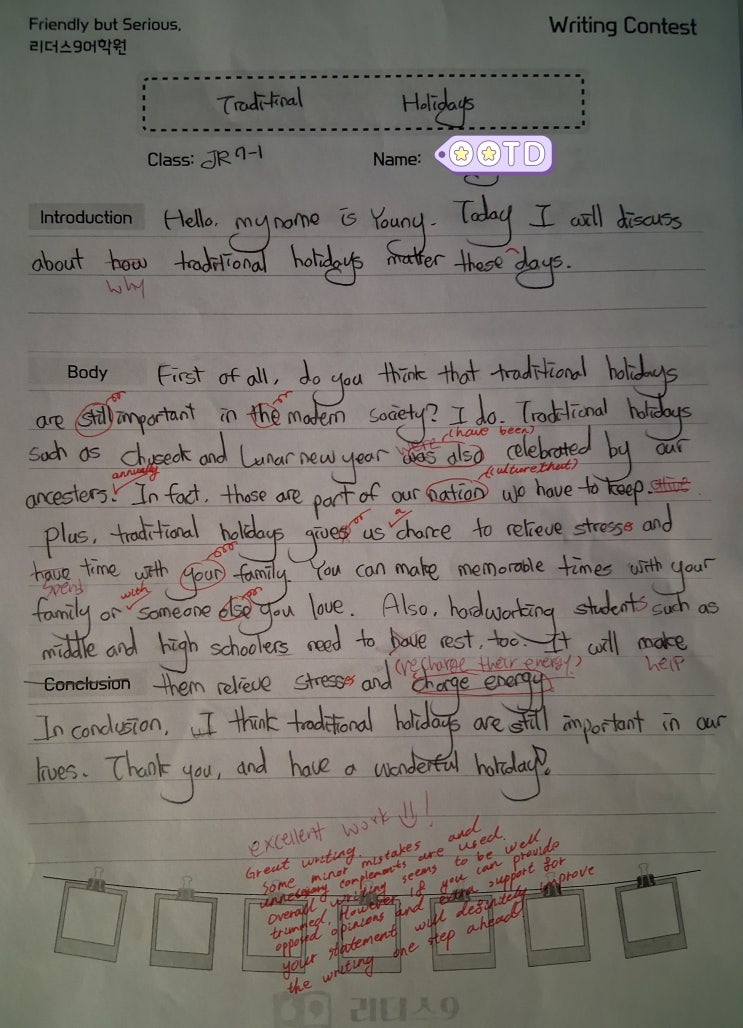 Friendly but Serious.
Writing Contest
리더스9어학원
Traditional Holidays
Class: JR 7-1 Name: OOTD
Introduction Hello, my name is Young. Today I will discuss
about how traditional holidays matter these days.
why
Body First of all, do you think that traditional holidays
are still important in the modern society? I do. Traditional holidays
were (have been)
such as chuseok and Lunar new year was also celebrated by our
annualy (culture that)
ancesters. In fact, those are part of our nation we have to keep.
a
Plus, traditional holidays gives us chance to relieve stresss and
have time with your family. You can make memorable times with your
spend with
family or someone else you love. Also, hardworking students such as
middle and high schoolers need to have rest, too. It will make
(recharge their energy) help
Conclusion them relieve stresss and charge energy.
In conclusion, I think traditional holidays are still important in our
lives. Thank you, and have a wonderful holiday?
excellent work !
Great writing.
Some minor mistakes and
unnecessary complements are used.
Overall writing seems to be well
trimmed. However if you can provide
opposed opinions and extra support for
your statement will definitely improve
the writing one step ahead!
리더스9